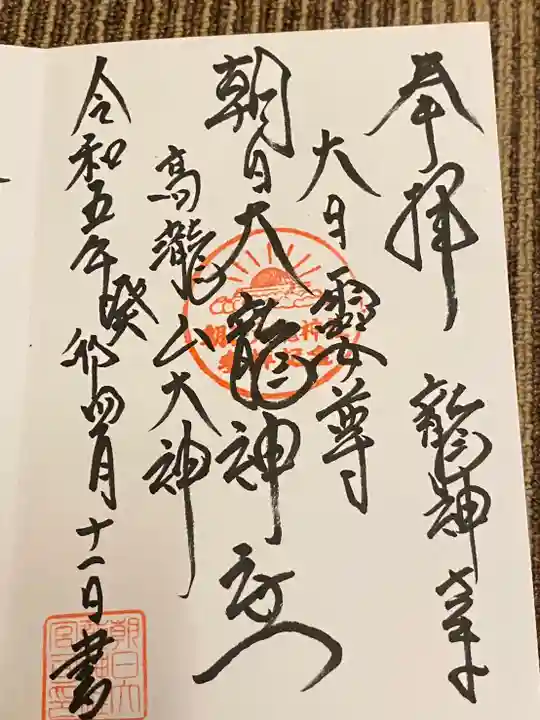 奉拝 龍神
大日靈尊
朝日大龍神
高龍山大神
令和五年癸卯四月十一日書